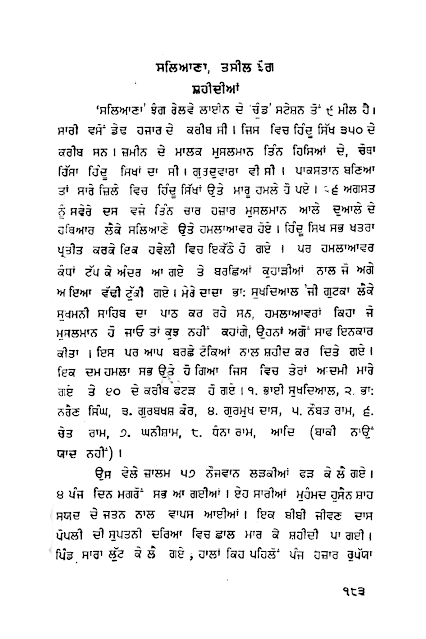 ਸਲਿਆਣਾ, ਤਸੀਲ ਝੰਗ
ਸ਼ਹੀਦੀਆਂ
'ਸਲਿਆਣਾ' ਝੰਗ ਰੇਲਵੇ ਲਾਈਨ ਦੇ 'ਚੁੰਡ' ਸਟੇਸ਼ਨ ਤੋਂ ੯ ਮੀਲ ਹੈ।
ਸਾਰੀ ਵਸੋਂ ਡੇਢ ਹਜ਼ਾਰ ਦੇ ਕਰੀਬ ਸੀ। ਜਿਸ ਵਿਚ ਹਿੰਦੂ ਸਿੱਖ ੩੫੦ ਦੇ
ਕਰੀਬ ਸਨ। ਜ਼ਮੀਨ ਦੇ ਮਾਲਕ ਮੁਸਲਮਾਨ ਤਿੰਨ ਹਿਸਿਆਂ ਦੇ, ਚੋਥਾ
ਹਿੱਸਾ ਹਿੰਦੂ ਸਿਖਾਂ ਦਾ ਸੀ। ਗੁਰਦੁਵਾਰਾ ਵੀ ਸੀ। ਪਾਕਸਤਾਨ ਬਣਿਆ
ਤਾਂ ਸਾਰੇ ਜ਼ਿਲੇ ਵਿਚ ਹਿੰਦੂ ਸਿੱਖਾਂ ਉਤੇ ਮਾਰੂ ਹਮਲੇ ਹੋ ਪਏ। ੨੬ ਅਗਸਤ
ਨੂੰ ਸਵੇਰੇ ਦਸ ਵਜੇ ਤਿੰਨ ਚਾਰ ਹਜ਼ਾਰ ਮੁਸਲਮਾਨ ਆਲੇ ਦੁਆਲੇ ਦੇ
ਹਥਿਆਰ ਲੈਕੇ ਸਲਿਆਣੇ ਉਤੇ ਹਮਲਾਆਵਰ ਹੋਏ। ਹਿੰਦੂ ਸਿਖ ਸਭ ਖਤਰਾ
ਪ੍ਰਤੀਤ ਕਰਕੇ ਇਕ ਹਵੇਲੀ ਵਿਚ ਇਕੱਠੇ ਹੋ ਗਏ। ਪਰ ਹਮਲਾਆਵਰ
ਕੰਧਾਂ ਟੱਪ ਕੇ ਅੰਦਰ ਆ ਗਏ ਤੇ ਬਰਛਿਆਂ ਕੁਹਾੜੀਆਂ ਨਾਲ ਜੋ ਅਗੇ
ਅਇਆ ਵੱਢੀ ਟੁੱਕੀ ਗਏ। ਮੇਰੇ ਦਾਦਾ ਭਾ: ਸੁਖਦਿਆਲ 'ਜੀ ਗੁਟਕਾ ਲੈਕੇ
ਸੁਖਮਨੀ ਸਾਹਿਬ ਦਾ ਪਾਠ ਕਰ ਰਹੇ ਸਨ, ਹਮਲਾਆਵਰਾਂ ਕਿਹਾ ਜੇ
ਮੁਸਲਮਾਨ ਹੋ ਜਾਓ ਤਾਂ ਕੁਝ ਨਹੀਂ ਕਹਾਂਗੇ, ਉਹਨਾਂ ਅਗੋਂ ਸਾਫ ਇਨਕਾਰ
ਕੀਤਾ। ਇਸ ਪਰ ਆਪ ਬਰਛੇ ਟੋਕਿਆਂ ਨਾਲ ਸ਼ਹੀਦ ਕਰ ਦਿਤੇ ਗਏ।
ਇਕ ਦਮ ਹਮਲਾ ਸਭ ਉਤੇ ਹੋ ਗਿਆ ਜਿਸ ਵਿਚ ਤੇਰਾਂ ਆਦਮੀ ਮਾਰੇ
ਗਏ ਤੇ ੪੦ ਦੇ ਕਰੀਬ ਫੱਟੜ ਹੋ ਗਏ। ੧. ਭਾਈ ਸੁਖਦਿਆਲ, ੨. ਭਾ:
ਨਰੈਣ ਸਿੰਘ, ੩. ਗੁਰਬਖਸ਼ ਕੌਰ, ੪. ਗੁਰਮੁਖ ਦਾਸ, ੫. ਨੌਬਤ ਰਾਮ, ੬.
ਚੇਤ ਰਾਮ, ੭. ਘਨੀਸ਼ਾਮ, ੮. ਧੰਨਾ ਰਾਮ, ਆਦਿ (ਬਾਕੀ ਨਾਉਂ
ਯਾਦ ਨਹੀਂ)।
ਉਸ ਵੇਲੇ ਜ਼ਾਲਮ ੫੭ ਨੌਜਵਾਨ ਲੜਕੀਆਂ ਫੜ ਕੇ ਲੈ ਗਏ।
੪ ਪੰਜ ਦਿਨ ਮਗਰੋਂ ਸਭ ਆ ਗਈਆਂ। ਏਹ ਸਾਰੀਆਂ ਮੁਹੰਮਦ ਹੁਸੈਨ ਸ਼ਾਹ
ਸਯਦ ਦੇ ਜਤਨ ਨਾਲ ਵਾਪਸ ਆਈਆਂ। ਇਕ ਬੀਬੀ ਜੀਵਣ ਦਾਸ
ਪੋਪਲੀ ਦੀ ਸੁਪਤਨੀ ਦਰਿਆ ਵਿਚ ਛਾਲ ਮਾਰ ਕੇ ਸ਼ਹੀਦੀ ਪਾ ਗਈ।
ਪਿੰਡ ਸਾਰਾ ਲੁੱਟ ਕੇ ਲੈ ਗਏ, ਹਾਲਾਂ ਕਿਹ ਪਹਿਲੋਂ ਪੰਜ ਹਜ਼ਾਰ ਰੁਪੱਯਾ
੧੮੩